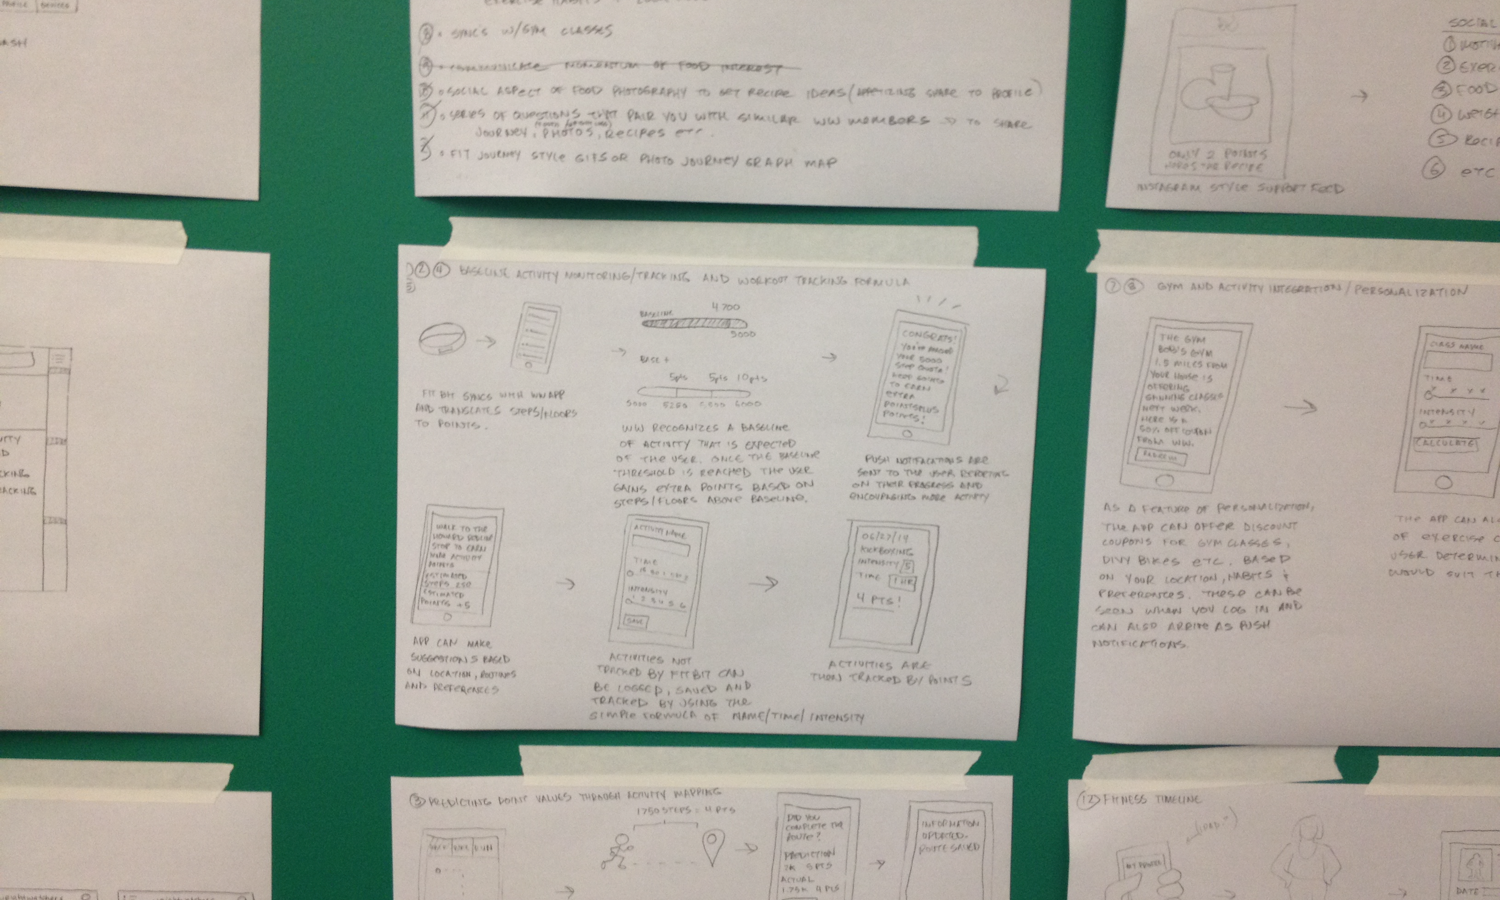 PROFILE DEVICES
③ • SYNCS W/GYM CLASSES
• SOCIAL ASPECT OF FOOD PHOTOGRAPHY TO GET RECIPE IDEAS (APPETIZING SHARE TO PROFILE)
• SERIES OF QUESTIONS THAT PAIR YOU WITH SIMILAR WW MEMBERS → TO SHARE
JOURNEY, PHOTOS, RECIPES ETC.
• FIT JOURNEY STYLE GIFS OR PHOTO JOURNEY GRAPH MAP
ONLY 2 POINTS
INSTAGRAM STYLE SUPPORT FEED
SOCIAL
①
②
③ FOOD
④
⑤
⑥ ETC
② ④ BASELINE ACTIVITY MONITORING/TRACKING AND WORKOUT TRACKING FORMULA
FIT BIT SYNCS WITH WW APP
AND TRANSLATES STEPS/FLOORS
TO POINTS.
4700
BASELINE
5000
BASE +
5pts 5pts 10pts
5000 5250 6000
WW RECOGNIZES A BASELINE
OF ACTIVITY THAT IS EXPECTED
OF THE USER. ONCE THE BASELINE
THRESHOLD IS REACHED THE USER
GAINS EXTRA POINTS BASED ON
STEPS/FLOORS ABOVE BASELINE.
CONGRATS!
YOU'VE
YOUR 5000
STEP QUOTA!
TO EARN
EXTRA
POINTSPLUS
POINTS!
PUSH NOTIFICATIONS ARE
SENT TO THE USER
ON THEIR PROGRESS AND
ENCOURAGING MORE ACTIVITY
WALK TO THE
STOP TO EARN
ACTIVITY
POINTS
ESTIMATED
STEPS 250
ESTIMATED
POINTS +5
APP CAN MAKE
SUGGESTIONS BASED
ON LOCATION, ROUTINES
AND PREFERENCES
ACTIVITY NAME
TIME
INTENSITY
SAVE
ACTIVITIES NOT
TRACKED BY FITBIT CAN
BE LOGGED, SAVED AND
TRACKED BY USING THE
SIMPLE FORMULA OF NAME/TIME/INTENSITY
06/27/14
KICKBOXING
INTENSITY 5
TIME 1 HR
4 PTS!
ACTIVITIES ARE
THEN TRACKED BY POINTS
⑦ ⑧ GYM AND ACTIVITY INTEGRATION/PERSONALIZATION
THE GYM
BOB'S GYM
1.5 MILES FROM
YOUR HOUSE IS
OFFERING
CLASSES
NEXT WEEK.
HERE IS A
50% OFF COUPON
FROM WW.
AS A FEATURE OF PERSONALIZATION,
THE APP CAN OFFER DISCOUNT
COUPONS FOR GYM CLASSES,
DIVY BIKES ETC. BASED
ON YOUR LOCATION, HABITS +
PREFERENCES. THESE CAN BE
SEEN WHEN YOU LOG IN AND
CAN ALSO ARRIVE AS PUSH
NOTIFICATIONS.
CLASS NAME
TIME
INTENSITY
CALCULATE
THE APP CAN
OF EXERCISE
USER
WOULD SUIT
③ PREDICTING POINT VALUES THROUGH ACTIVITY MAPPING
1750 STEPS = 4 PTS
DID YOU
COMPLETE THE
ROUTE?
PREDICTION
2K 5 PTS
ACTUAL
1.75K 4 PTS
INFORMATION
UPDATED.
ROUTE SAVED
⑫ FITNESS TIMELINE
DATE